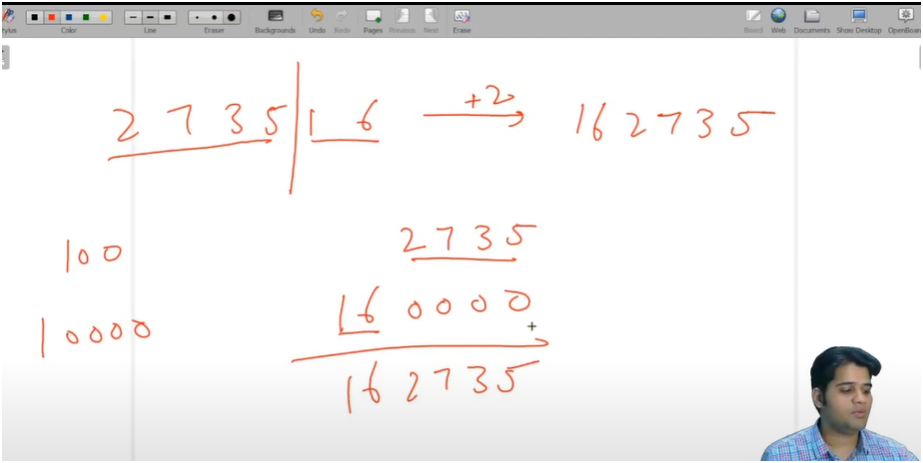 Stylus Color Line Eraser Backgrounds Undo Redo Pages Previous Next Erase Board Web Documents Show Desktop OpenBoard
2 7 3 5 | 1 6 +2 → 16 2 7 3 5
100 2 7 3 5
10000 16 0 0 0 0
16 2 7 3 5